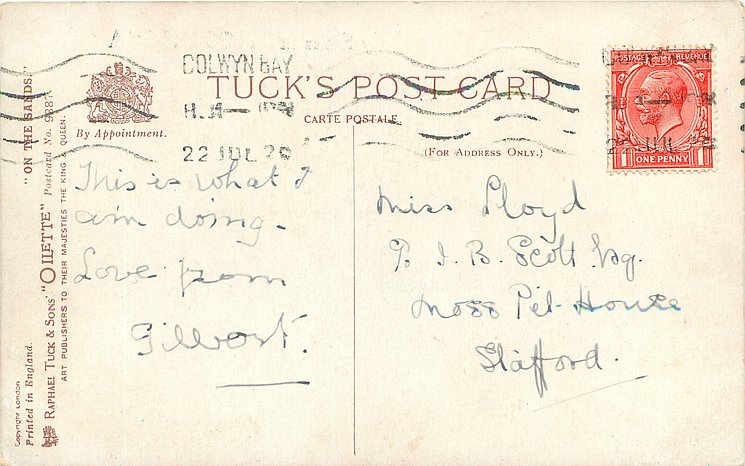 COLWYN BAY
22 JUL 2
TUCK'S POST CARD
CARTE POSTALE
(FOR ADDRESS ONLY.)
By Appointment.
"ON THE SANDS."
RAPHAEL TUCK & SONS' "OILETTE" Postcard No.
ART PUBLISHERS TO THEIR MAJESTIES THE KING & QUEEN.
Copyright London
Printed in England.
POSTAGE REVENUE
1 ONE PENNY 1
This is what I
am doing.
Love from
Gilbert.
Miss Lloyd
℅ I. B. Scott Esq.
Moss Pit House
Stafford.